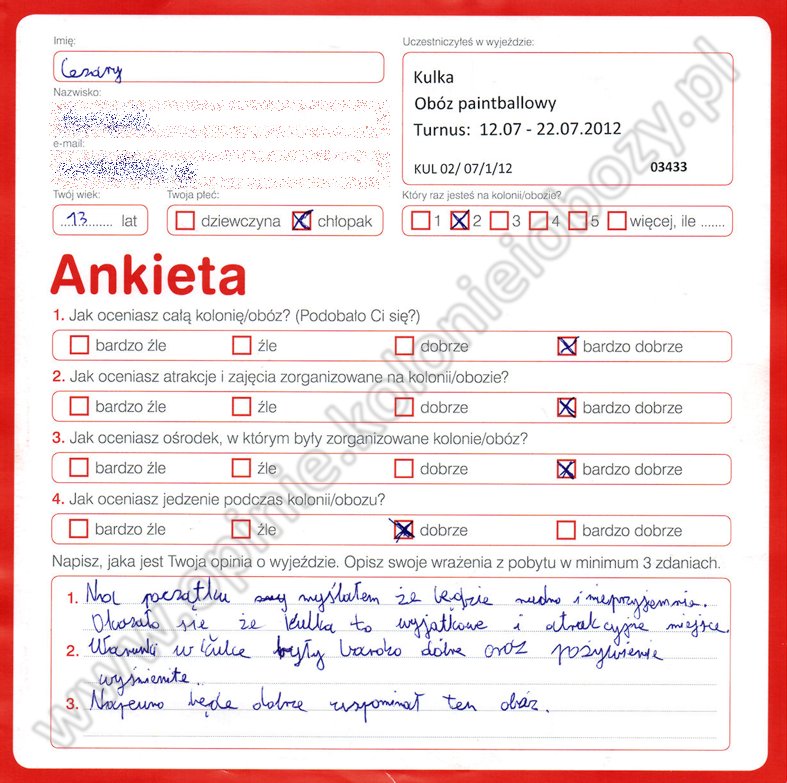 Imię:
Cezary
Uczestniczyłeś w wyjeździe:
Kulka
Obóz paintballowy
Turnus: 12.07 - 22.07.2012
KUL 02/ 07/1/12 03433
Nazwisko:
e-mail:
Twój wiek:
13 lat
Twoja płeć:
dziewczyna chłopak
Który raz jesteś na kolonii/obozie?
1 2 3 4 5 więcej, ile .......
Ankieta
1. Jak oceniasz całą kolonię/obóz? (Podobało Ci się?)
bardzo źle źle dobrze bardzo dobrze
2. Jak oceniasz atrakcje i zajęcia zorganizowane na kolonii/obozie?
bardzo źle źle dobrze bardzo dobrze
3. Jak oceniasz ośrodek, w którym były zorganizowane kolonie/obóz?
bardzo źle źle dobrze bardzo dobrze
4. Jak oceniasz jedzenie podczas kolonii/obozu?
bardzo źle źle dobrze bardzo dobrze
Napisz, jaka jest Twoja opinia o wyjeździe. Opisz swoje wrażenia z pobytu w minimum 3 zdaniach.
1. Na początku myślałem że będzie nudno i nieprzyjemnie.
Okazało się że kulka to wyjątkowe i atrakcyjne miejsce.
2. Warunki w Kulce były bardzo dobre oraz pożywienie
wyśmienite.
3. Napewno będę dobrze wspominał ten obóz.
www.opinie.kolonieiobozy.pl